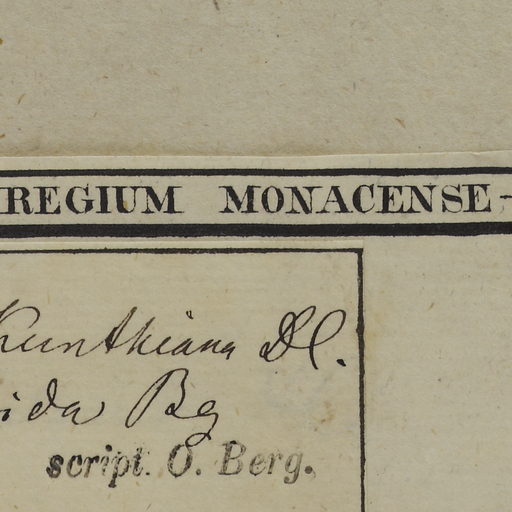 REGIUM MONACENSE -
Kunthiana DC.
ida Bg
script. O. Berg.